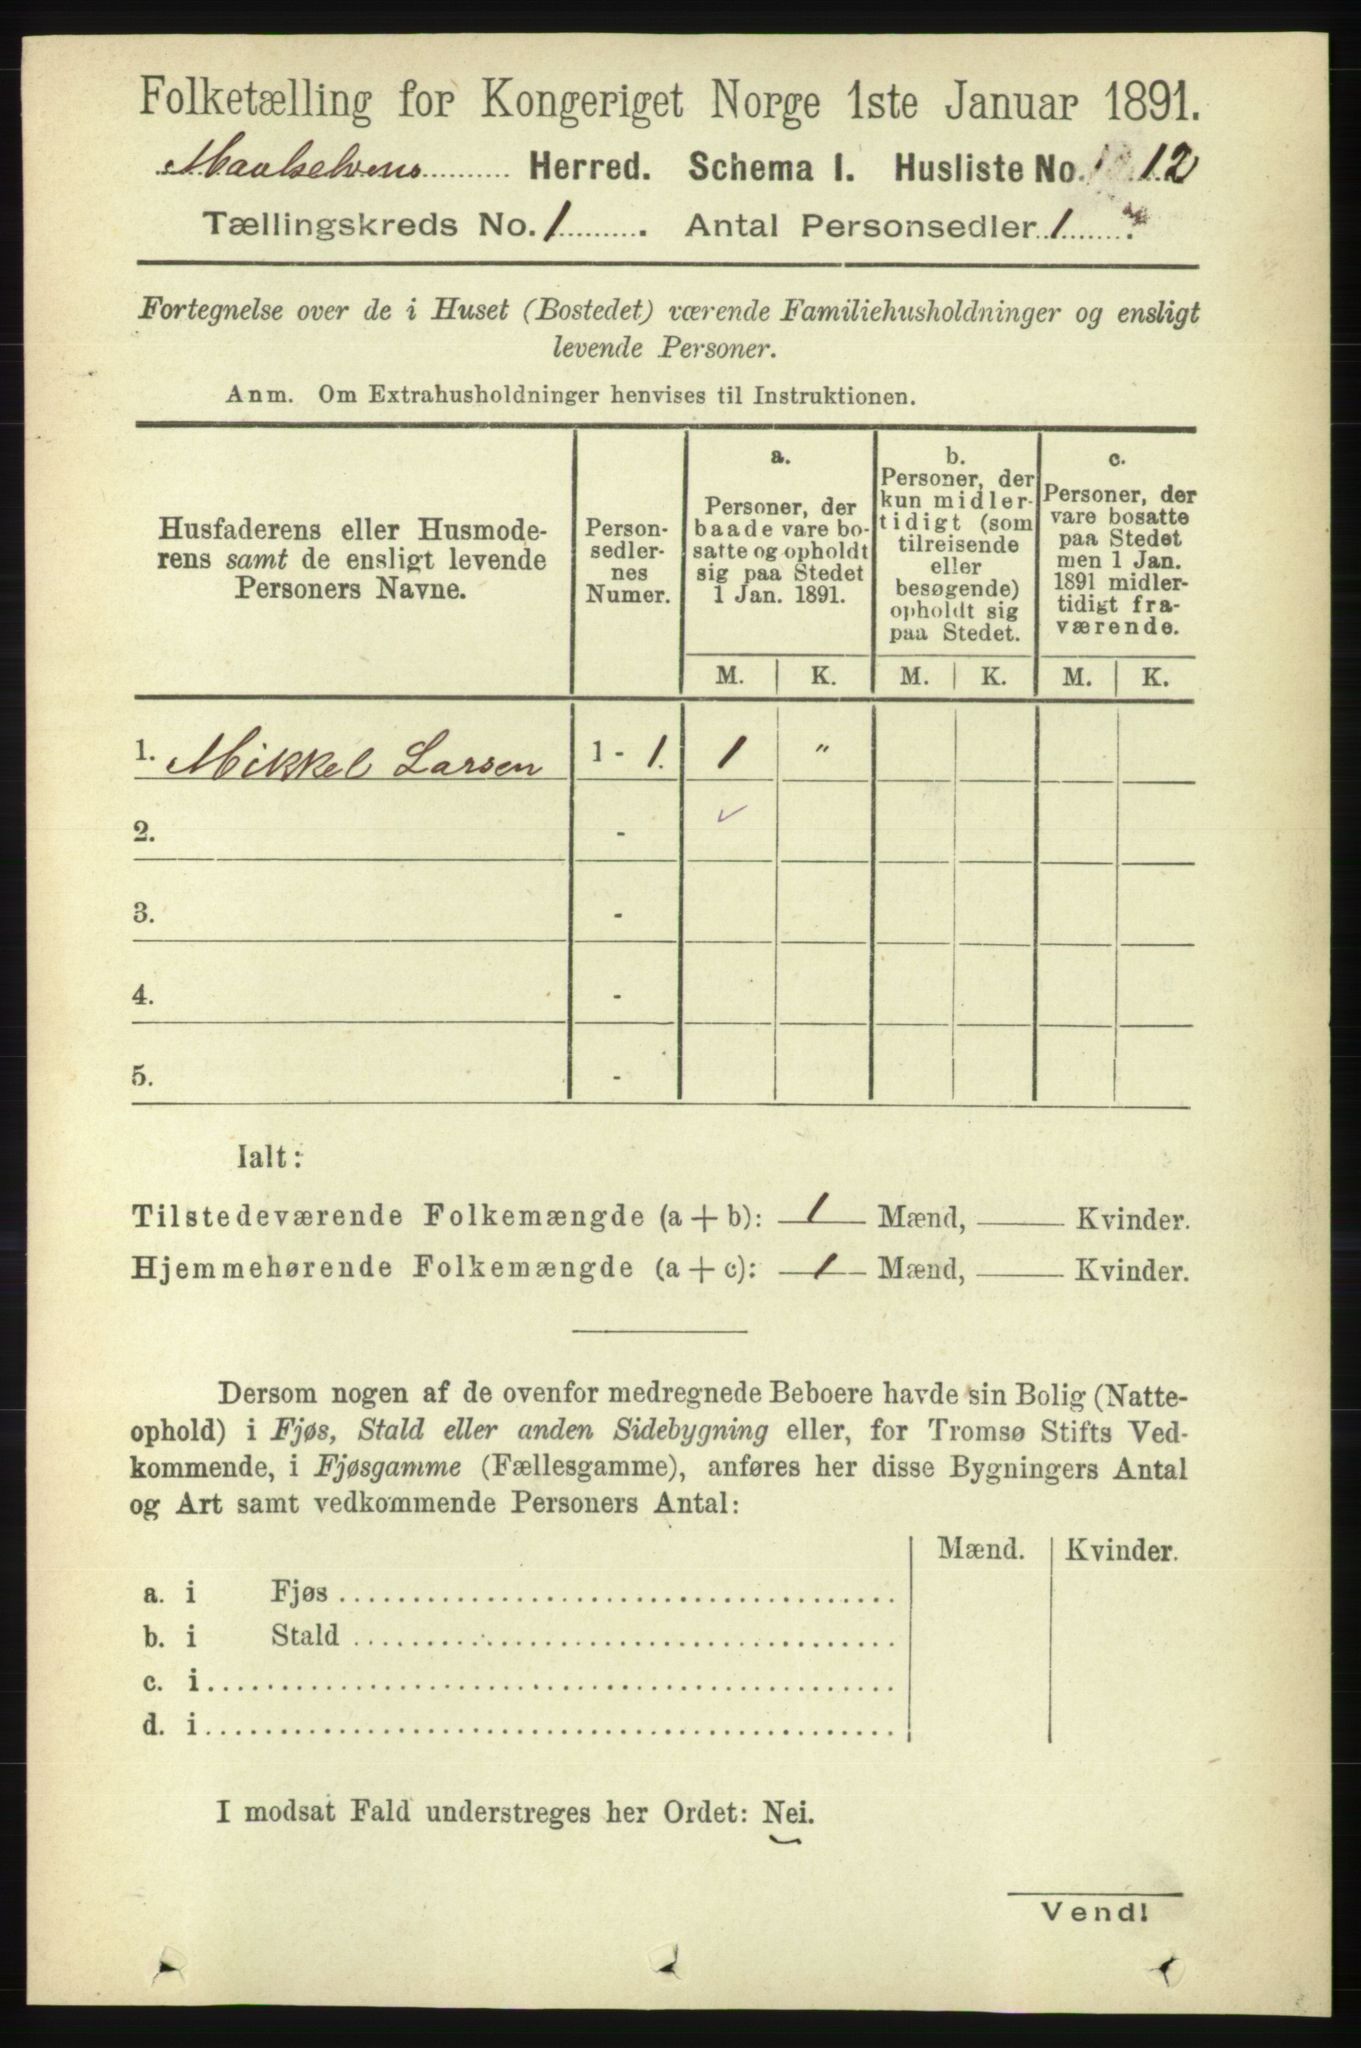 Folketælling for Kongeriget Norge 1ste Januar 1891.
Maalselvens Herred. Schema I. Husliste No. 12
Tællingskreds No. 1 . Antal Personsedler 1 .
Fortegnelse over de i Huset (Bostedet) værende Familiehusholdninger og ensligt
levende Personer.
Anm. Om Extrahusholdninger henvises til Instruktionen.
Husfaderens eller Husmode-
rens samt de ensligt levende
Personers Navne.
Person-
sedler-
nes
Numer.
a.
Personer, der
baade vare bo-
satte og opholdt
sig paa Stedet
1 Jan. 1891.
b.
Personer, der
kun midler-
tidigt (som
tilreisende
eller
besøgende)
opholdt sig
paa Stedet.
c.
Personer, der
vare bosatte
paa Stedet
men 1 Jan.
1891 midler-
tidigt fra-
værende.
M. K. M. K. M. K.
1. Mikkel Larsen 1 - 1. 1 "
2. - ✓
3. -
4. -
5. -
Ialt:
Tilstedeværende Folkemængde (a + b): 1 Mænd, Kvinder.
Hjemmehørende Folkemængde (a + c): 1 Mænd, Kvinder.
Dersom nogen af de ovenfor medregnede Beboere havde sin Bolig (Natte-
ophold) i Fjøs, Stald eller anden Sidebygning eller, for Tromsø Stifts Ved-
kommende, i Fjøsgamme (Fællesgamme), anføres her disse Bygningers Antal
og Art samt vedkommende Personers Antal:
Mænd. Kvinder.
a. i Fjøs
b. i Stald
c. i
d. i
I modsat Fald understreges her Ordet: Nei.
Vend!